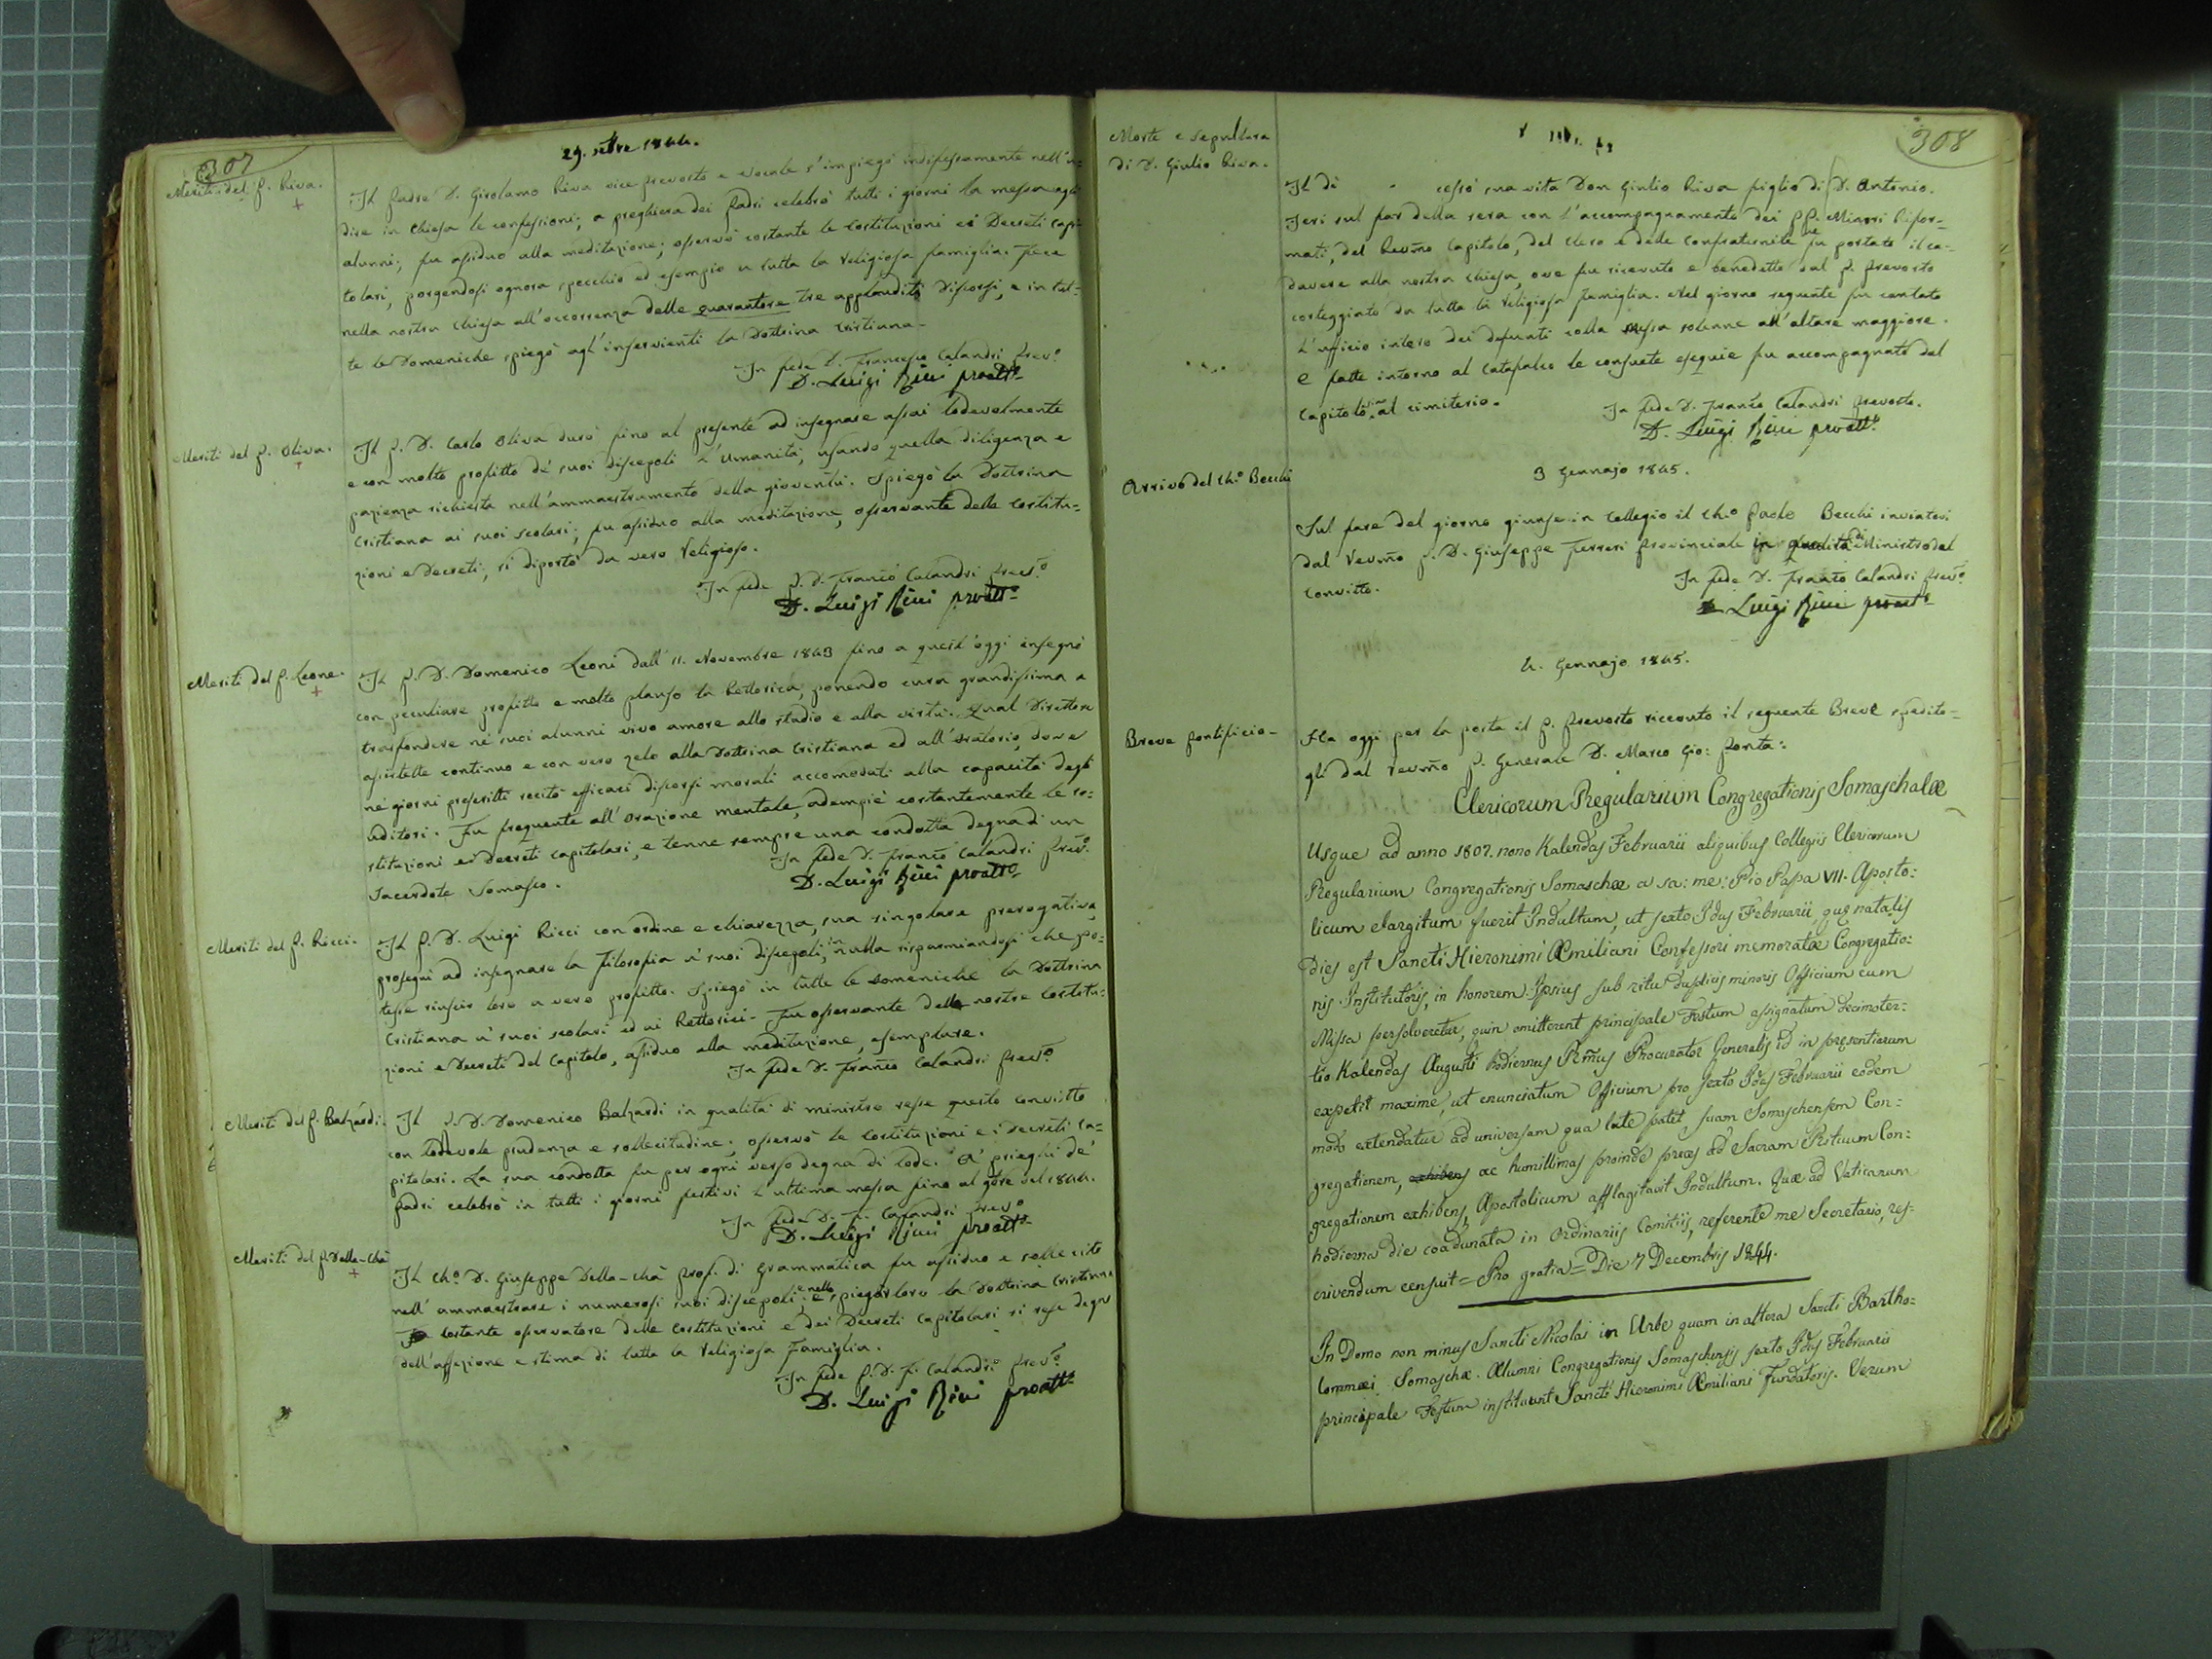 307
29. 7bre 1844.
Meriti del P. Riva.
Il Padre D. Girolamo Riva vice prevosto e vocale s'impiegò indefessamente nell'u-
dire in Chiesa le confessioni; a preghiera dei Padri celebrò tutti i giorni la messa agli
alunni; fu assiduo alla meditazione; osservò costante le Costituzioni ei Decreti capi-
tolari, porgendosi ognora specchio ed esempio a tutta la religiosa famiglia. Fece
nella nostra Chiesa all'occorrenza delle quarantore tre applauditi discorsi, e in tut-
te le Domeniche spiegò agl'inservienti la Dottrina cristiana.
In fede D. Francesco Calandri Prevº.
D. Luigi Ricci proattº
Meriti del P. Oliva.
Il P. D. Carlo Oliva durò fino al presente ad insegnare assai lodevolmente
e con molto profitto de' suoi discepoli l'Umanità, usando quella diligenza e
pazienza richiesta nell'ammaestramento della gioventù. Spiegò la Dottrina
cristiana ai suoi scolari; fu assiduo alla meditazione, osservante delle Costitu-
zioni e Decreti, si diportò da vero religioso.
In fede P. D. Francº Calandri Prevº.
D. Luigi Ricci proattº
Meriti del P. Leone.
Il P. D. Domenico Leoni dall'11. Novembre 1843 fino a quest'oggi insegnò
con peculiare profitto e molto plauso la Rettorica, ponendo cura grandissima a
trasfondere ne' suoi alunni vivo amore allo studio e alla virtù. Qual Direttore
assistette continuo e con vero zelo alla Dottrina Cristiana ed all'Oratorio, dove
ne' giorni prescritti recitò efficaci discorsi morali accomodati alla capacità degli
uditori. Fu frequente all'orazione mentale, adempiè costantemente le co-
stituzioni ei decreti capitolari, e tenne sempre una condotta degna di un
sacerdote Somasco.
In fede D. Francº Calandri Prevº.
D. Luigi Ricci proattº
Meriti del P. Ricci.
Il P. D. Luigi Ricci con ordine e chiarezza, sua singolare prerogativa,
proseguì ad insegnare la Filosofia a' suoi discepoli, in nulla risparmiandosi che po-
tesse riuscir loro a vero profitto. Spiegò in tutte le domeniche la Dottrina
Cristiana a' suoi scolari ed ai Rettorici. Fu osservante delle nostre Costitu-
zioni e Decreti del Capitolo, assiduo alla meditazione, esemplare.
In fede D. Francº Calandri Prevº
Meriti del P. Balzardi.
Il P. D. Domenico Balzardi in qualità di ministro resse questo convitto
con lodevole prudenza e sollecitudine; osservò le Costituzioni e i Decreti ca-
pitolari. La sua condotta fu per ogni verso degna di lode. A' prieghi de'
Padri celebrò in tutti i giorni festivi l'ultima messa fino al 9bre del 1844.
In fede D. F. Calandri Prevº
D. Luigi Ricci proattº
Meriti del P. Della-Chà
Il Chº D. Giuseppe Della-Chà prof. di Grammatica fu assiduo e sollecito
nell'ammaestrare i numerosi suoi discepoli, e nello spiegar loro la Dottrina Cristiana
Fu costante osservatore delle Costituzioni e dei Decreti Capitolari si rese degno
dell'affezione e stima di tutta la religiosa Famiglia.
In fede P. D. F. Calandri Prevº
D. Luigi Ricci proattº
308
Morte e sepultura
di D. Giulio Riva.
Il dì cessò sua vita Don Giulio Riva figlio di D. Antonio.
Jeri sul far della sera con l'accompagnamento dei PP. Minori Rifor-
mati, del Revmo Capitolo, del clero e delle confraternite fu portato il ca-
davere alla nostra Chiesa, ove fu ricevuto e benedetto dal P. Prevosto
corteggiato da tutta la religiosa famiglia. Nel giorno seguente fu cantato
l'ufficio intero dei defunti colla messa solenne all'altare maggiore.
E fatte intorno al catafalco le consuete esequie fu accompagnato dal
Capitolo al cimiterio.
In fede D. Francº Calandri Prevosto.
D. Luigi Ricci proattº.
3 Gennajo 1845.
Arrivo del Chº. Becchi
Sul fare del giorno giunse in Collegio il Chº Paolo Becchi inviatovi
dal Revmo P. D. Giuseppe Ferreri Provinciale in qualità di Ministro del
convitto.
In fede D. Francº Calandri Prevº.
D. Luigi Ricci proattº
4. Gennajo 1845.
Breve Pontificio-
Ha oggi per la posta il P. Prevosto ricevuto il seguente Breve spedito-
gli dal revmo P. Generale D. Marco Gio: Ponta:
Clericorum Regularium Congregationis Somaschae
Usque ad anno 1807. nono Kalendas Februarii aliquibus Collegiis Clericorum
Regularium Congregationis Somaschae a sa: me: Pio Papa VII. Aposto:
licum elargitum fuerit Indultum, ut sexto Idus Februarii quę natalis
Dies est Sancti Hieronimi Æmiliani Confessori memoratæ Congregatio:
nis Institutoris, in honorem Ipsius sub ritu duplicis minoris Officium cum
Missa persolveretur, quin omitterent principale Festum assignatum decimoter:
tio Kalendas Augusti hodiernus Rmus Procurator Generalis id in pręsentiarum
expetit maxime, ut enunciatum Officium pro sexto Idus Februarii eodem
modo extendatur ad universam qua late patet suam Somaschensem Con:
gregationem, exhibens ac humillimas proinde preces ad Sacram Rituum Con:
gregationem exhibens, Apostolicum afflagitavit Indultum. Quæ ad Vaticanum
hodierna die coadunata in Ordinariis Comitiis, referente me Secretario, res-
crivendum censuit = Pro gratia = Die 7 Decembris 1844.
In Domo non minus Sancti Nicolai in Urbe quam in altera Sancti Bartho:
lommæi Somaschæ. Alumni Congregationis Somaschensis sexto Idus Februarii
principale Festum instituunt Sancti Hieronimi Æmiliani Fundatoris. Verum